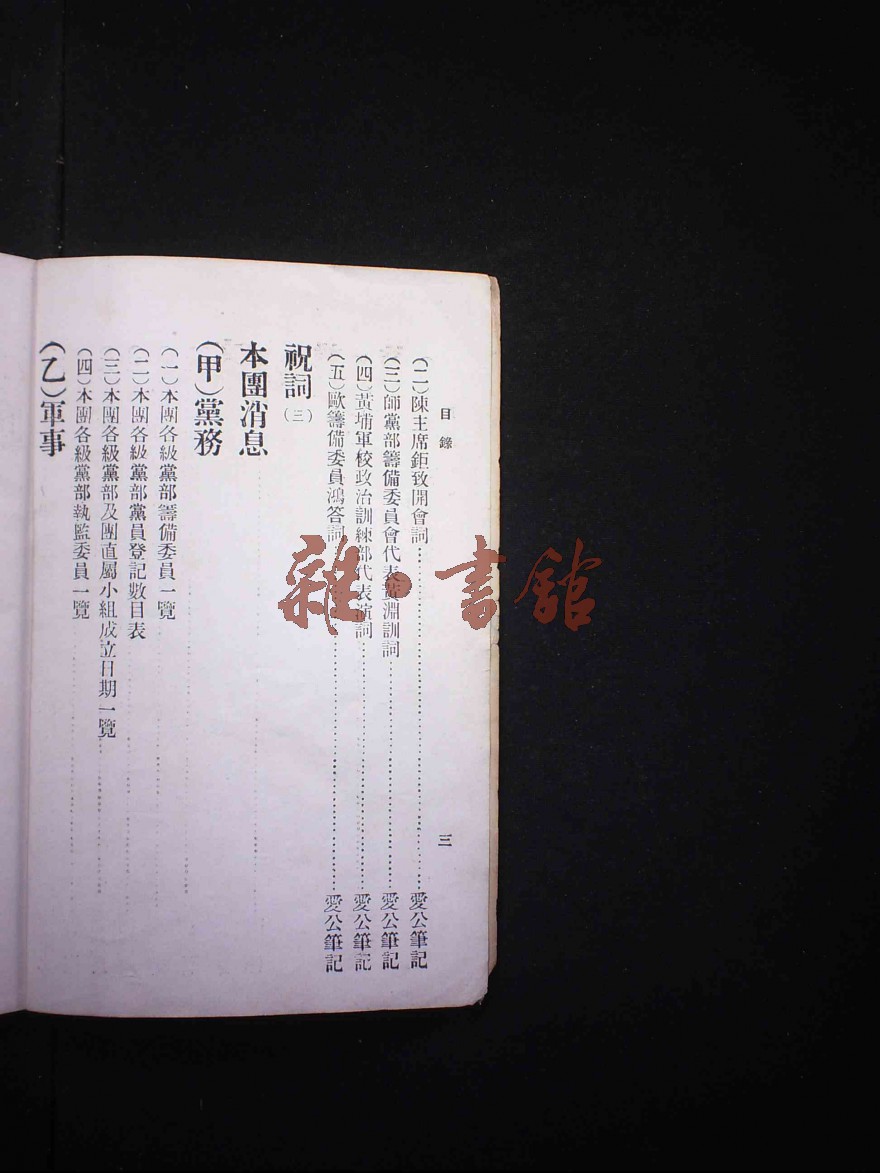 目錄
三
(二)陳主席鉅致開會詞……愛公筆記
(三)師黨部籌備委員會代表 淵訓詞……愛公筆記
(四)黃埔軍校政治訓練部代表演詞……愛公筆記
(五)歐籌備委員鴻答詞……愛公筆記
祝詞(三)
本團消息
(甲)黨務
(一)本團各級黨部籌備委員一覽
(二)本團各級黨部黨員登記數目表
(三)本團各級黨部及團直屬小組成立日期一覽
(四)本團各級黨部執監委員一覽
(乙)軍事
雜·書館